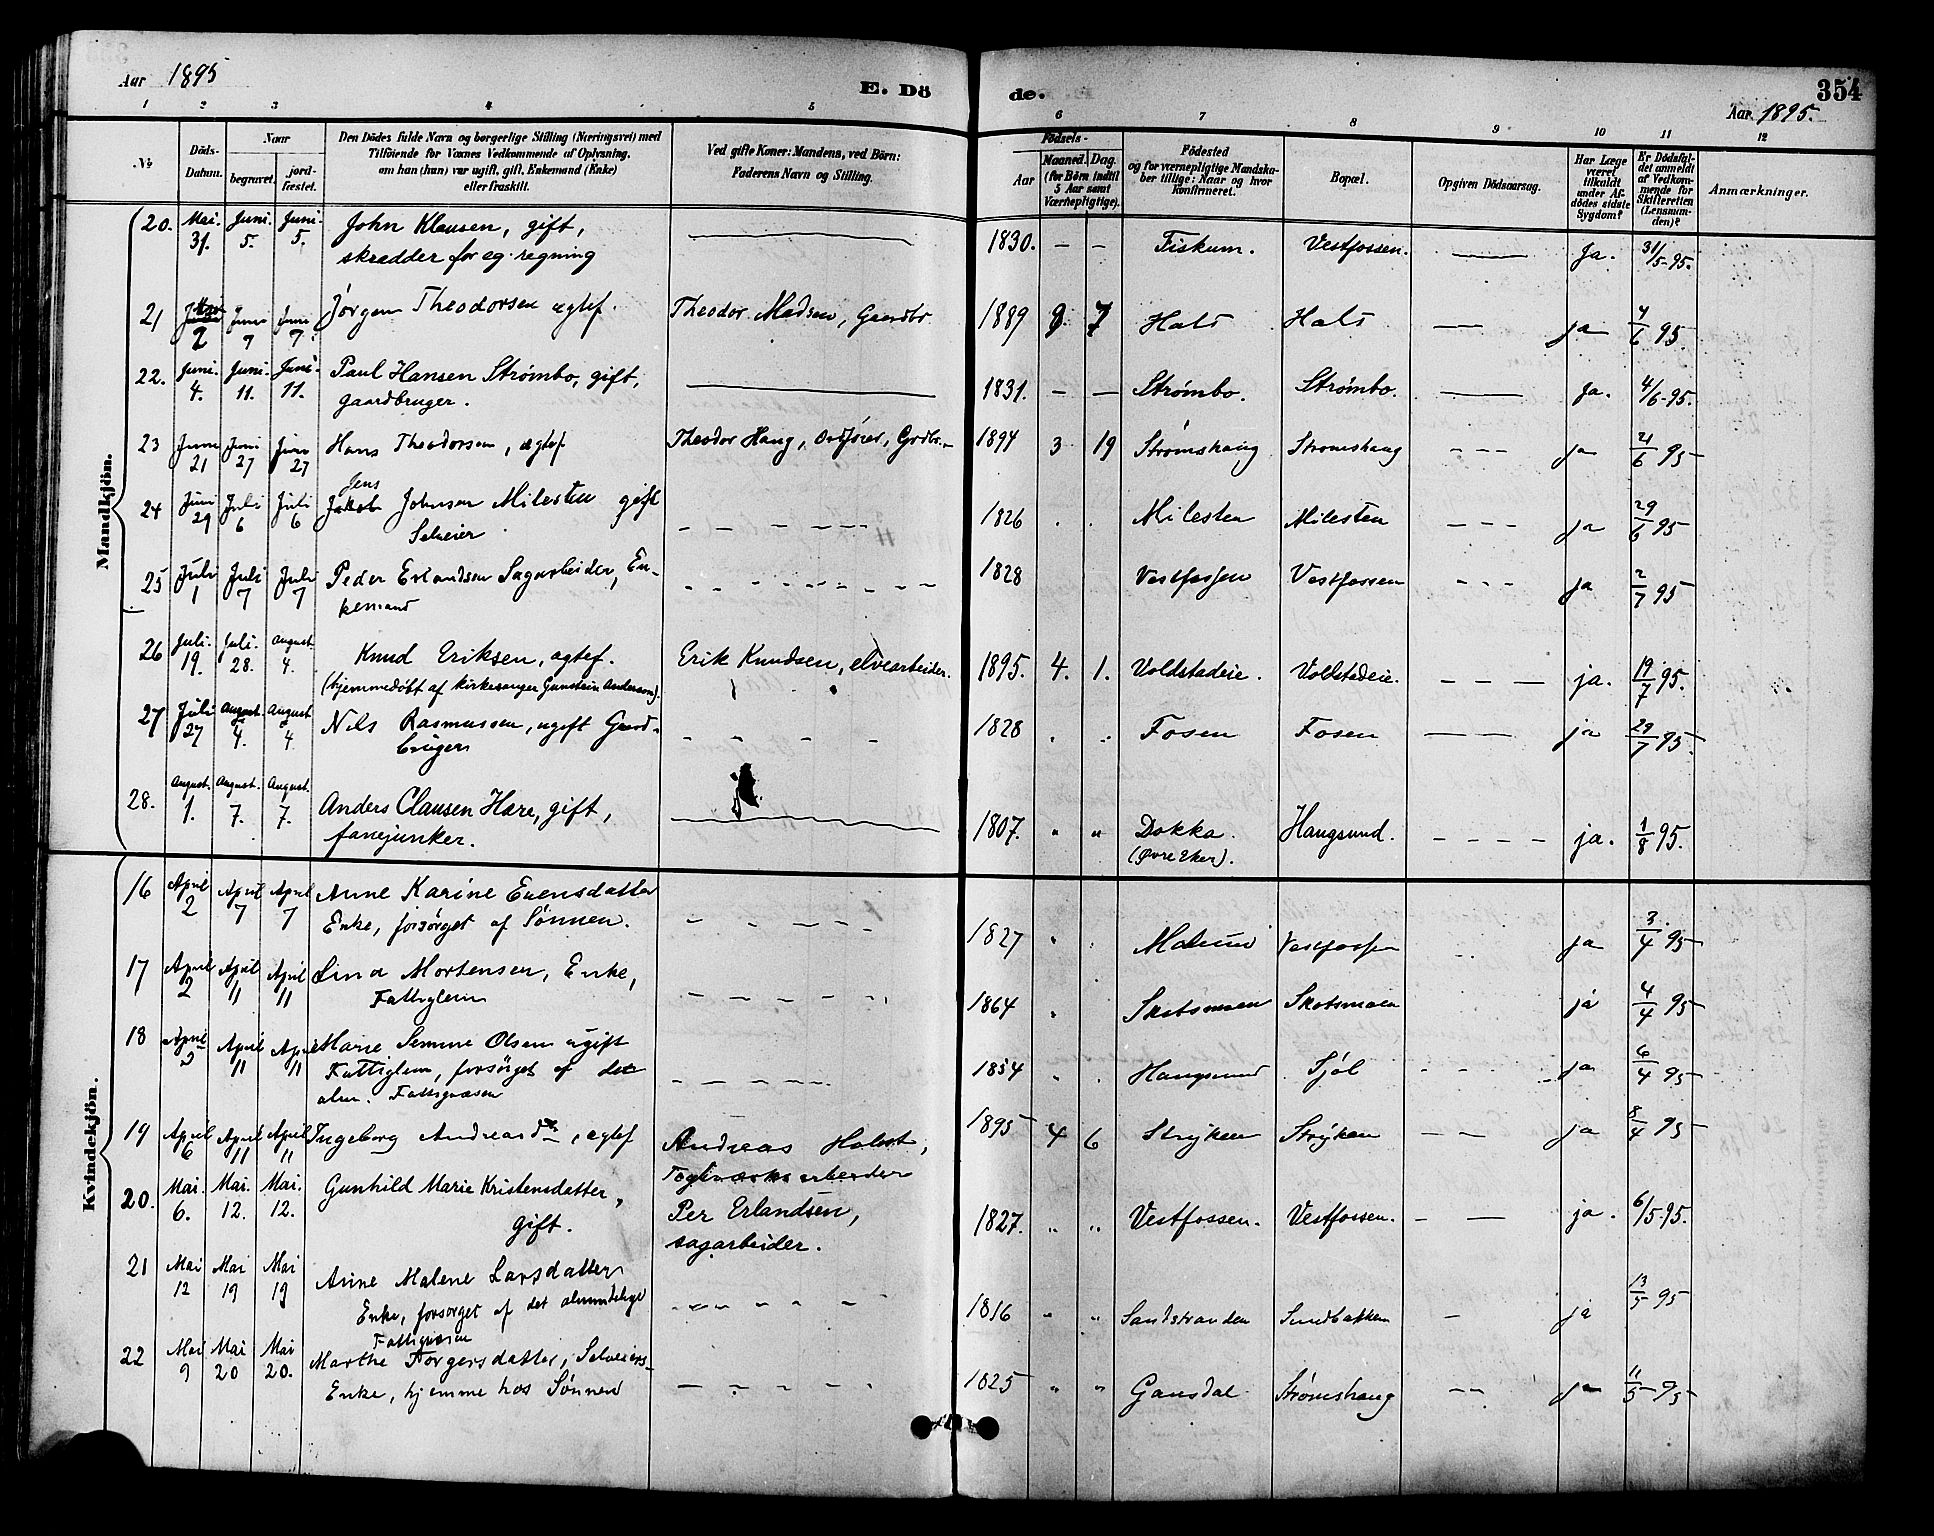 Aar 1895
E. Dö
de.
354
Aar 1895.
1 2 3 4 5 6 7 8 9 10 11 12
No
Döds-Datum.
Naar
begravet.
jord-fæstet.
Den Dödes fulde Navn og borgerlige Stilling (Næringsvei) med
Tilföiende for Voxnes Vedkommende af Oplysning,
om han (hun) var ugift, gift, Enkemand (Enke)
eller fraskilt.
Ved gifte Koner: Mandens, ved Börn:
Faderens Navn og Stilling.
Födsels-
Aar
Maaned. Dag.
(for Børn indtil
5 Aar samt
Værnepligtige).
Födested
og for værnepligtige Mandska-
ber tillige: Naar og hvor
konfirmeret.
Bopæl.
Opgiven Dödsaarsag.
Har Læge
været
tilkaldt
under Af-
dödes sidste
Sygdom?
Er Dödsfal-
det anmeldt
af Vedkom-
mende for
Skifteretten
(Lensman-
den)?
Anmærkninger.
Mandkjön.
20. Mai. 31. Juni. 5. Juni. 5. John Klausen, gift, 1830. – – Fiskum. Vestfossen. — Ja. 31/5-95.
skrædder for eg. regning
21 2 Juni 9 Juni 7. Jörgen Theodorsen ægtef. Theodor Madsen, Gaardbr. 1889 7 Hals Hals — ja 4/6 95.
22. Juni. 4. Juni. 11. Juni. 11. Paul Hansen Strømbo, gift, 1831. – – Strømbo. Strømbo. — Ja. 4/6-95.
gaardbruger.
23 Juni 21 Juni 27 Juni 27 Hans Theodorsen, ægtef Theodor Haug, Grdbr. 1894 3 19 Strømshaug Stromshaug --- ja 21/6 95
Jens
24 Juni 29 Juli 6 Juli 6 Jakob Johnsen Milesten gift 1826 Milesten Milesten --- ja 29/6 95
Selveier
25 Juli 1 Juli 7 Juli 7 Peder Erlandsen Sagarbeider, En- 1828 Vestfossen Vestfossen --- ja 2/7 95
kemand
26 Juli. 19. Juli. 28. August. 4. Knud Eriksen, ægtef. Erik Knudsen, elvearbeider. 1895. 4. 1. Voldstadeie. Voldstadeie. --- ja. 19/7 95.
(hjemmedöbt af kirkesanger Gunstein Anderson).
27 Juli 27 August. 4. August. 4. Nils Rasmussen, ugift Gaard- 1828 Fosen Fosen — ja 29/7 95
bruger
28. August. 1. August. 7. August. 7. Anders Clausen Hare, gift, 1807. " " Dokka. Haugsund. ---- ja. 1/8 95.
fanejunker. (Øvre Eker).
Kvindekjön.
16 April 2 April 7 April 7 Anne Karine Evensdatter
Enke, forsörget af Sønnen. 1827 Vestfossen ja 3/4 95
17 April 2 April 11 April 11 Lina Mortensen, Enke,
Fattiglem 1864 Skotsmoen Skotsmoen ja 4/4 95
18 April 2 April 11 April 11 Marie Semine Olsen ugift
Fattiglem, forsörget af det 1854 Haugsund Sjöl ja 6/4 95
alm. Fattigvæsen
19 April 6 April 11 April 11 Ingeborg Andreasd., ægtef Andreas Holst, 1895 4 6 Stryken Stryken -- ja 8/4 95
Teglværksarbeider
20. Mai. 6. Mai. 12. Mai. 12. Gunhild Marie Kristensdatter, gift. Per Erlandsen, 1827. " " Vestfossen. Vestfossen. -- ja. 6/5.95.
sagarbeider.
21 Mai 12 Mai 19 Mai 19 Anne Malene Larsdatter
Enke, forsørget af det almindelige 1816 " " Sandstranden Sundbakken – ja 13/5 95
Fattigvæsen
22 Mai 9 Mai 20 Mai 20. Marthe Torgersdatter, Selveiers-
Enke, hjemme hos Sønnen 1825 " " Gausdal Strømshaug -- ja 11/5 95